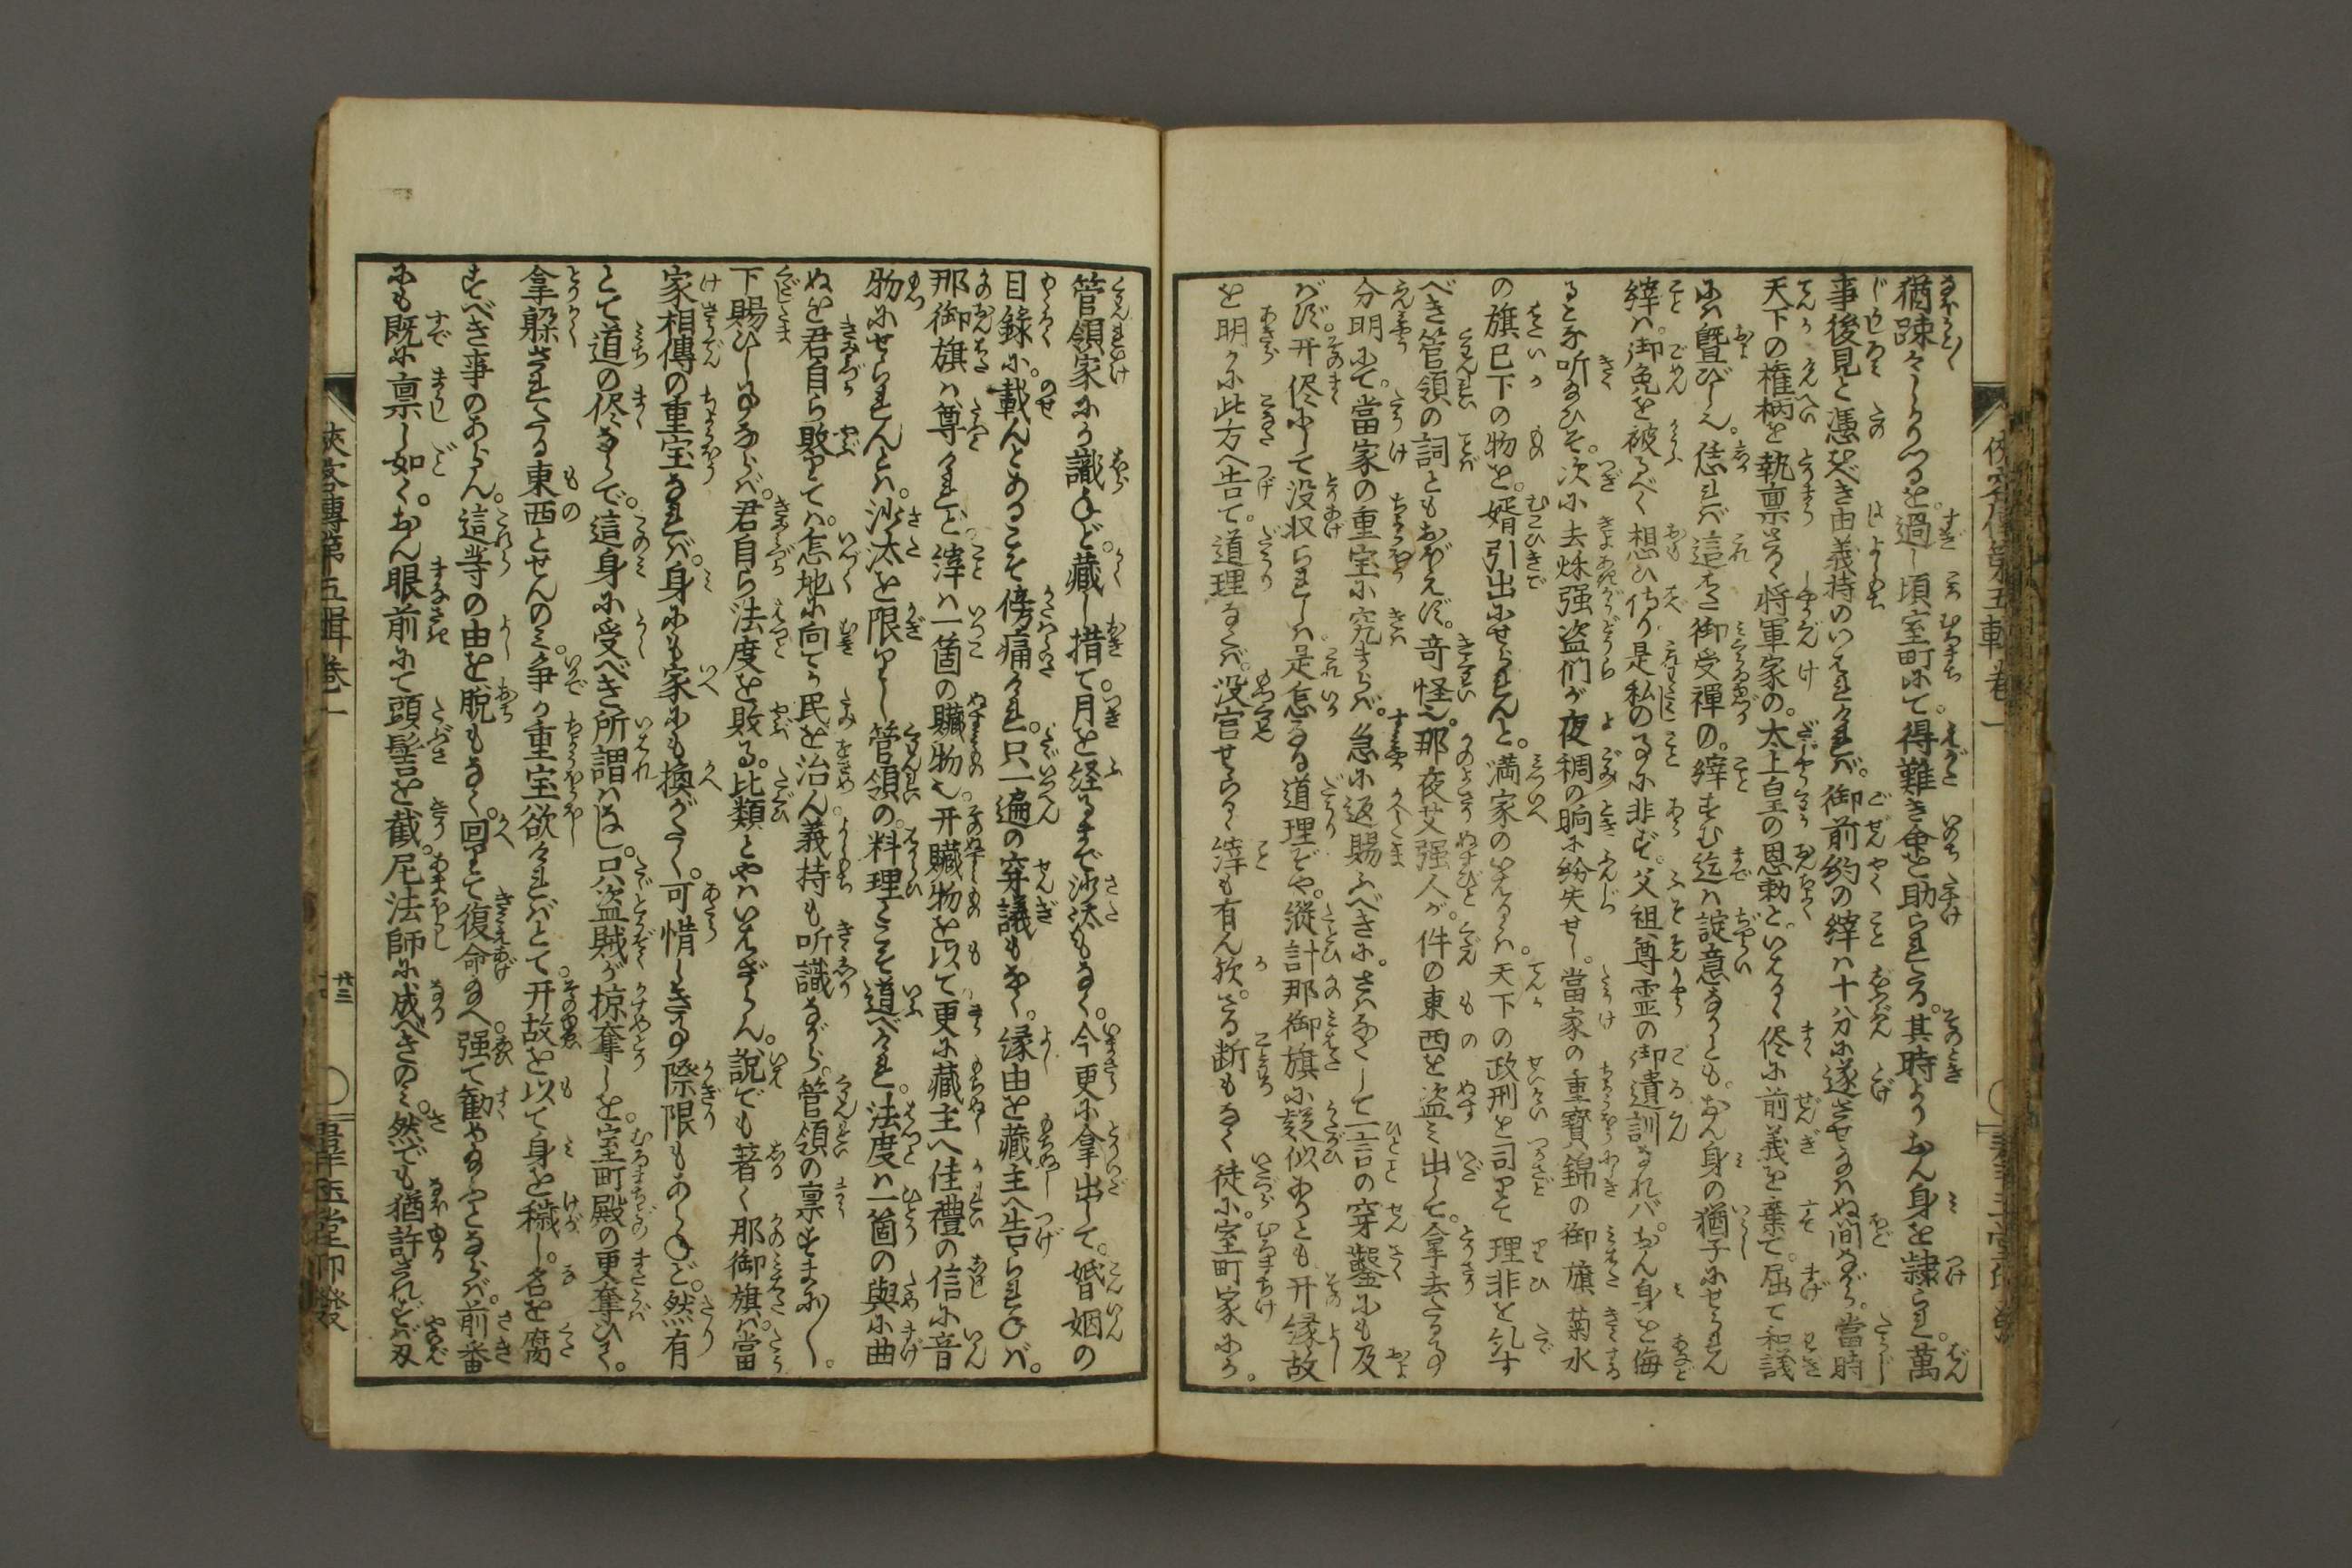 猶疎々しかりつるを。過し頃室町にて。得難き命を助られたる。其時よりおん身を隷られ。萬
事後見と憑むべき由義持のいはれければ。御前約の縡は十八分に遂させ給はぬ間ながら。當時
天下の権柄を執禀給ふ将軍家の。太上皇の恩勅と。いはるゝ侭に前義を棄て。屈て和議
には曁びしに。恁れば這たび御受禪の。縡すむ迄は諚意なりとも。おん身の猶子にせられん
縡は。御免を被るべく想ひ侍り是私の事に非ず。父祖尊霊の御遺訓なれバ。おん身を侮
ることな听給ひそ。次に去秌强盗們が夜稠の晌に紛失せし。當家の重寳錦の御旗菊水
の旗已下の物を。婿引出にせられんと。満家のいはるゝは。天下の政刑を司りて理非を乱す
べき管領の詞ともおぼえず。竒怪也。那夜艾强人が。件の東西を盗み出して。拿去たる事
分明にて。當家の重宝に究まらば。急に返賜ふべきに。さはなくして一言の穿鑿にも及
ばず。开侭にして没収られしは是怎なる道理ぞや。縦計那御旗に疑似ありとも开縁故
を明かに此方へ告て。道理ならば。没官せらるゝ縡も有ん欤。さる断もなく徒に。室町家にか。
俠客傳第五輯巻一
管領家にか識らねど。藏し措て。月を経るまで沙汰もなく。今更に拿出して。婚姻の
目録に。載んとあるこそ傍痛けれ。只一遍の穿議もなく。縁由を藏主へ告られねば。
那御旗は尊けれど縡は一箇の贓物也。开贓物を以て更に藏主へ佳禮の信に音
物にせられんとは。沙汰を限りし管領の。料理とこそ道べけれ。法度は一箇の與に曲
ぬを君自ら敗りては。怎地に向てか民を治ん。義持も听識ながら。管領の禀すまにし。
下賜ひし事ならば。君自ら法度を敗る。比類とやはいはざらん。說でも著く那御旗は。當
家相傳の重宝なれば。身にも家にも換がたく。可惜しき事際限もあらねど。然有
とて道の侭ならで。這身に受べき所謂はなし。只盗賊が掠奪しを。室町殿の更奪ひく。
拿躱されたる東西とせんのみ。争か重宝欲ければとて。开故を以て身を穢し。名を腐
すべき事のあらん。這等の由を脱もなく。回りて復命給へ。强て勸め給はんとならば。前番
にも既に禀しゝ如く。おん眼前にて頭髻を截。尼法師に成べきのみ。然でも猶許されずば刃
俠客傳第五輯巻一
廿三
羣玉堂印發